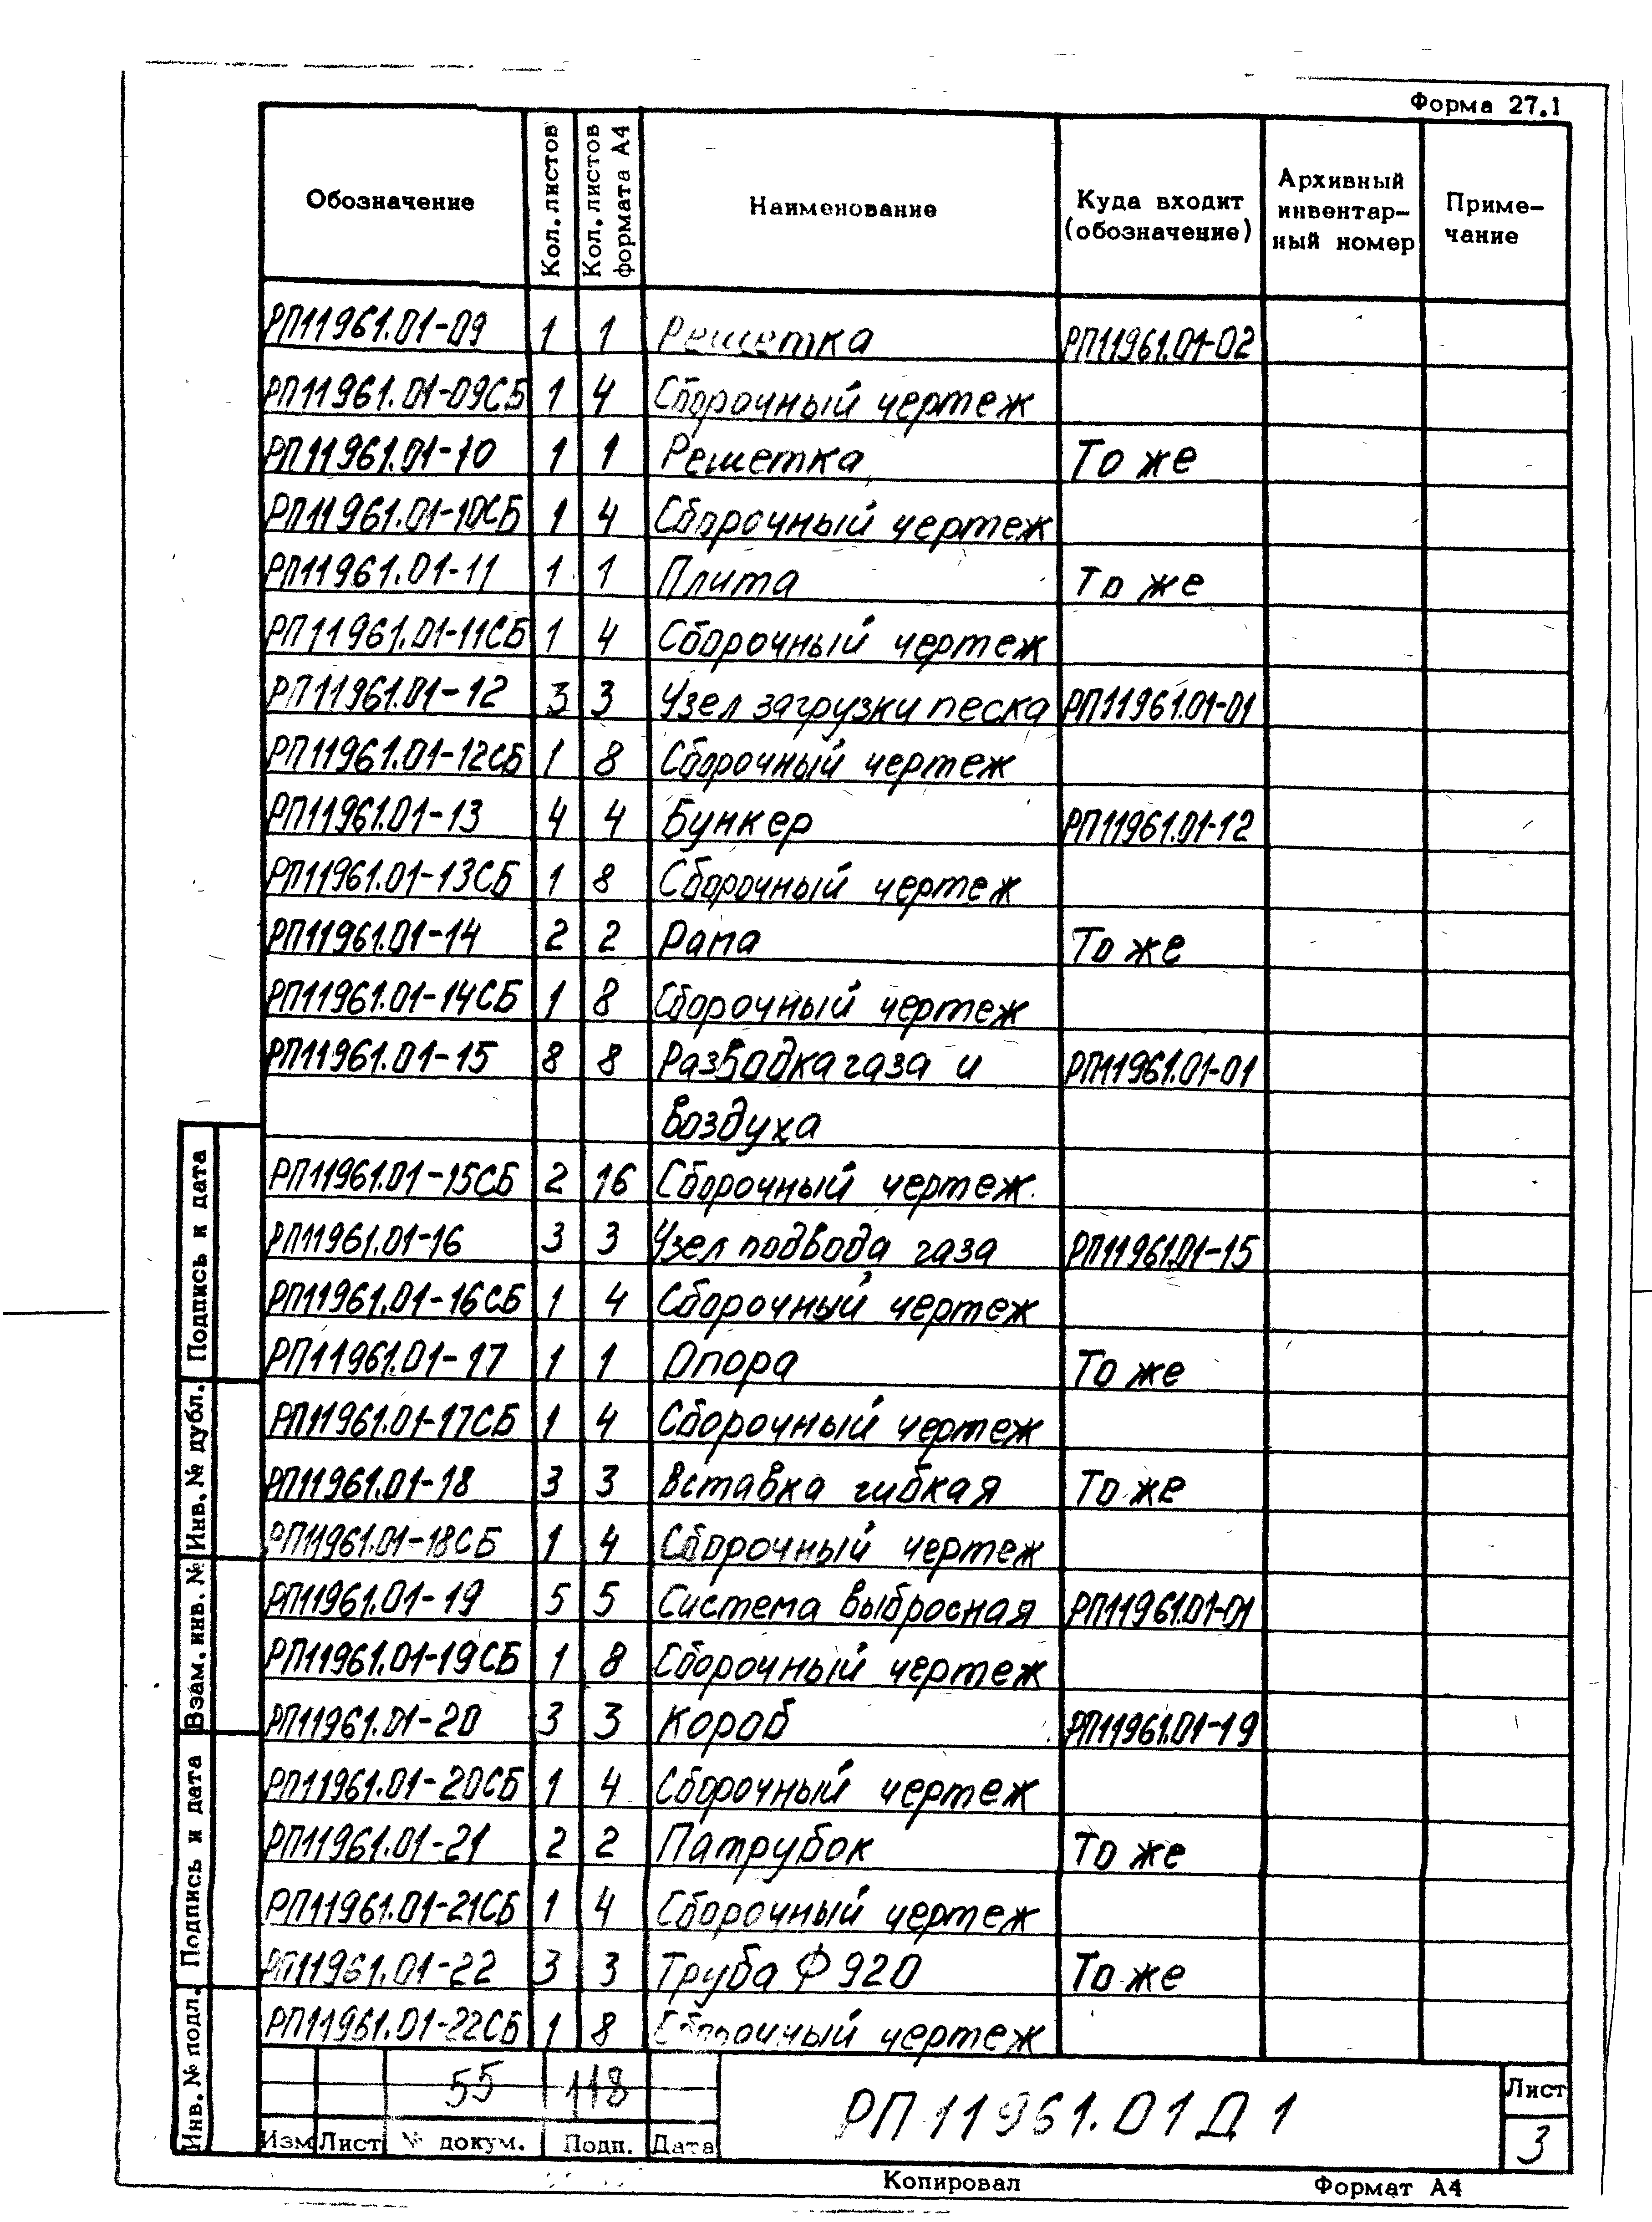 Форма 27.1
Обозначение
Кол. листов
Кол. листов формата А4
Наименование
Куда входит (обозначение)
Архивный инвентар-ный номер
Приме-чание
РП11961.01-09 1 1 Решетка РП11961.01-02
РП11961.01-09СБ 1 4 Сборочный чертеж
РП11961.01-10 1 1 Решетка То же
РП11961.01-10СБ 1 4 Сборочный чертеж
РП11961.01-11 1 1 Плита То же
РП11961.01-11СБ 1 4 Сборочный чертеж
РП11961.01-12 3 3 Узел загрузки песка РП11961.01-01
РП11961.01-12СБ 1 8 Сборочный чертеж
РП11961.01-13 4 4 Бункер РП11961.01-12
РП11961.01-13СБ 1 8 Сборочный чертеж
РП11961.01-14 2 2 Рама То же
РП11961.01-14СБ 1 8 Сборочный чертеж
РП11961.01-15 8 8 Разводка газа и РП11961.01-01
воздуха
РП11961.01-15СБ 2 16 Сборочный чертеж.
РП11961.01-16 3 3 Узел подвода газа РП11961.01-15
РП11961.01-16СБ 1 4 Сборочный чертеж
РП11961.01-17 1 1 Опора То же
РП11961.01-17СБ 1 4 Сборочный чертеж
РП11961.01-18 3 3 Вставка гибкая То же
РП11961.01-18СБ 1 4 Сборочный чертеж
РП11961.01-19 5 5 Система выбросная РП11961.01-01
РП11961.01-19СБ 1 8 Сборочный чертеж
РП11961.01-20 3 3 Короб РП11961.01-19
РП11961.01-20СБ 1 4 Сборочный чертеж
РП11961.01-21 2 2 Патрубок То же
РП11961.01-21СБ 1 4 Сборочный чертеж
РП11961.01-22 3 3 Труба Ф 920 То же
РП11961.01-22СБ 1 8 Сборочный чертеж
55 118
Изм Лист № докум. Подп. Дата
РП 11961.01 Д 1
Лист
3
Копировал
Формат А4
Подпись и дата
Инв. № дубл.
Взам. инв. №
Подпись и дата
Инв. № подл.